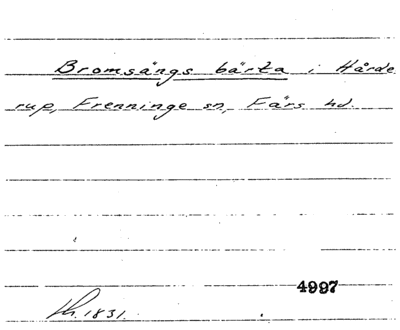 Bromsängs bärta i Hårde
rup, Frenninge sn, Färs hd.
4997
Lh. 1831.